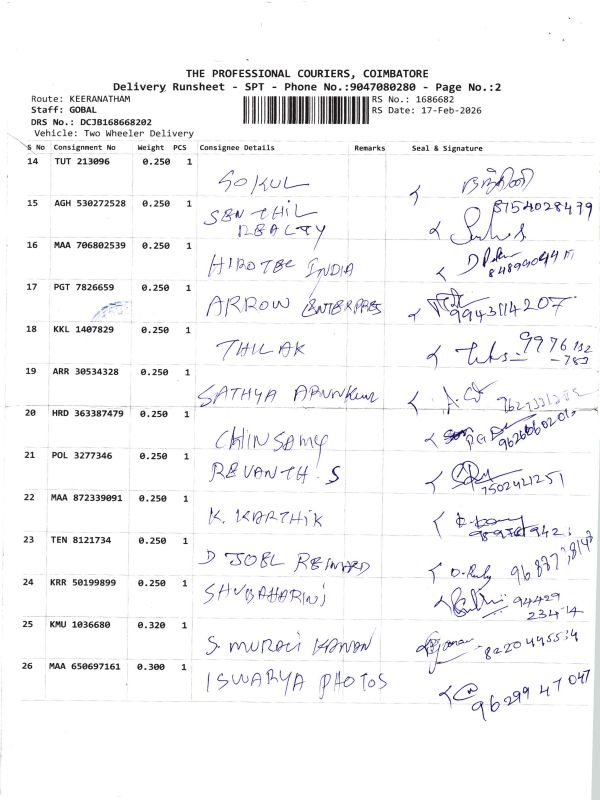 THE PROFESSIONAL COURIERS, COIMBATORE
Delivery Runsheet - SPT - Phone No.:9047080280 - Page No.:2
Route: KEERANATHAM RS No.: 1686682
Staff: GOBAL RS Date: 17-Feb-2026
DRS No.: DCJB168668202
Vehicle: Two Wheeler Delivery
S No Consignment No Weight PCS Consignee Details Remarks Seal & Signature
14 TUT 213096 0.250 1 GOKUL
15 AGH 530272528 0.250 1 SENTHIL REALTY 8754028479
16 MAA 706802539 0.250 1 HIROTEC INDIA
17 PGT 7826659 0.250 1 ARROW ENTERPRES 9943114207
18 KKL 1407829 0.250 1 THILAK 9976132
-783
19 ARR 30534328 0.250 1 SATHYA ARUNKUMAR
20 HRD 363387479 0.250 1 CHINSAMY
21 POL 3277346 0.250 1 REVANTH.S 7502421251
22 MAA 872339091 0.250 1 K. KARTHIK
23 TEN 8121734 0.250 1 D JOEL REINARD
24 KRR 50199899 0.250 1 SHUBAHARINI 94429
23414
25 KMU 1036680 0.320 1 S. MURALI KANNAN 8220495534
26 MAA 650697161 0.300 1 ISWARYA PHOTOS 9629947047